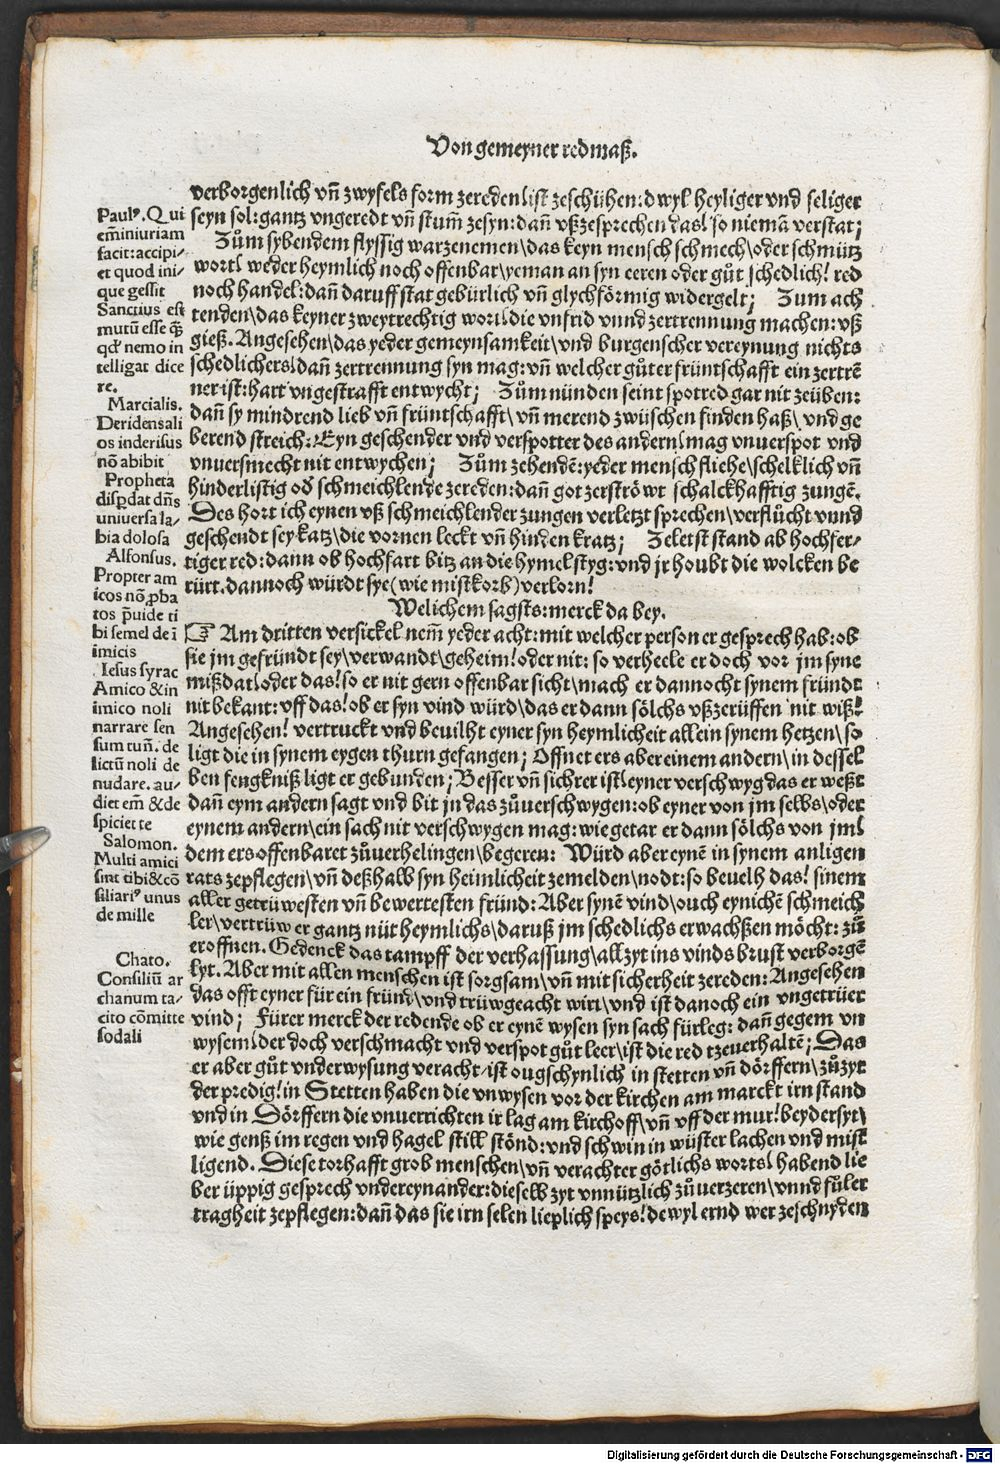 Von gemeyner redmaß.
verborgenlich vñ zwyfels form zereden/ist zeschühen:d wyl heyliger vnd seliger
seyn sol:gantz vngeredt vñ stum̃ zesyn:dañ vßzesprechen das/so niemã verstat;
Zům sybendem flyssig warzenemen/das keyn mensch schmech/oder schmütz
wort/weder heymlich noch offenbar/yeman an syn eeren oder gůt schedlich/red
noch handel:dañ daruff stat gebürlich vñ glychförmig widergelt; Zum ach
tenden/das keyner zweytrechtig wort/die vnfrid vnnd zertrennung machen:vß
gieß. Angesehen/das yeder gemeynsamkeit/vnd burgenscher vereynung nichts
schedlichers/dañ zertrennung syn mag:vñ welcher gůter früntschafft ein zertrẽ
ner ist:hart vngestrafft entwycht; Zům nünden seint spotred gar nit zeüben:
dañ sy mindrend lieb vñ früntschafft/vñ merend zwüschen finden haß/vnd ge
berend streich:Eyn geschender vnd verspotter des andern/mag vnuerspot vnd
vnuersmecht nit entwychen; Zům zehendẽ:yeder mensch fliehe/schelklich vñ
hinderlistig od̕ schmeichlende zereden:dañ got zerströwt schalckhafftig zungẽ.
Des hort ich eynen vß schmeichlender zungen verletzt sprechen/verflůcht vnnd
geschendt sey katz/die vornen leckt vñ hinden kratz; Zeletst stand ab hochfer-
tiger red:dann ob hochfart bitz an die hymel styg:vnd jr houbt die wolcken be
rürt.dannoch würdt sye(wie mistkorb)verlorn/
Welichem sagsts:merck da bey.
☞ Am dritten versickel nem̃ yeder acht:mit welcher person er gesprech hab:ob
sie jm gefründt sey/verwandt/geheim/oder nit: so verheele er doch vor jm syne
mißdat/oder das/so er nit gern offenbar sicht/mach er dannocht synem fründt
nit bekant:vff das/ob er syn vind würd/das er dann sölchs vßzerüffen nit wiß/
Angesehen/vertruckt vnd beuilht eyner syn heymlicheit allein synem hetzen/so
ligt die in synem eygen thurn gefangen; Offnet ers aber einem andern/in dessel
ben fengkniß ligt er gebunden; Besser vñ sichrer ist/eyner verschwyg das er weßt
dañ eym andern sagt vnd bit jn das zůuerschwygen:ob eyner von jm selbs/oder
eynem andern/ein sach nit verschwygen mag:wie getar er dann sölchs von jm/
dem ers offenbaret zůuerhelingen/begeren: Würd aber eynẽ in synem anligen
rats zepflegen/vñ deßhalb syn heimlicheit zemelden/nodt:so beuelh das/sinem
aller getrüwesten vñ bewertesten fründ:Aber synẽ vind/ouch eynichẽ schmeich
ler/vertrüw er gantz nüt heymlichs/daruß jm schedlichs erwachßen möcht: zů
eroffnen. Gedenck das tampff der verhassung/allzyt ins vinds brust verborgẽ
lyt. Aber mit allen menschen ist sorgsam/vñ mit sicherheit zereden: Angesehen
das offt eyner für ein fründ/vnd trüwgeacht wirt/vnd ist danoch ein vngetrüer
vind; Fürer merck der redende ob er eynẽ wysen syn sach fürleg: dañ gegem vn
wysem/der doch verschmacht vnd verspot gůt leer/ist die red tzeuerhaltẽ; Das
er aber gůt vnderwysung veracht/ist ougschynlich in stetten vñ dörffern/zůzyt
der predig/in Stetten haben die vnwysen vor der kirchen am marckt irn stand
vnd in Dörffern die vnuerrichten ir lag am kirchoff/vñ vff der mur/beydersyt/
wie genß im regen vnd hagel still stönd:vnd schwin in wüster lachen vnd mist
ligend. Diese torhafft grob menschen/vñ verachter götlichs worts/habend lie
ber üppig gesprech vndereynander:dieselb zyt vnnützlich zůuerzeren/vnnd fůler
tragheit zepflegen:dañ das sie irn selen lieplich speys/de wyl ernd wer zeschnyden
Paulꝰ. Qui
em̃iniuriam
facit:accipi-
et quod ini-
que gessit
Sanctius est
mutũ esse q̃
qd̕ nemo in
telligat dice
re.
Marcialis.
Deridensali
os inderisus
nõ abibit
Propheta
disꝑdat dñs
uniuersa la-
bia dolosa
Alfonsus.
Propter am
icos nõ ꝓba
tos p̃uide ti
bi semel de ĩ
imicis
Iesus syrac
Amico &in
imico noli
narrare sen
sum tuũ. de
lictũ noli de
nudare. au-
diet em̃ &de
spiciet te
Salomon.
Multi amici
sint tibi&cõ
siliariꝰ unus
de mille
Chato.
Consiliũ ar
chanum ta-
cito cõmitte
sodali
Digitalisierung gefördert durch die Deutsche Forschungsgemeinschaft - DFG